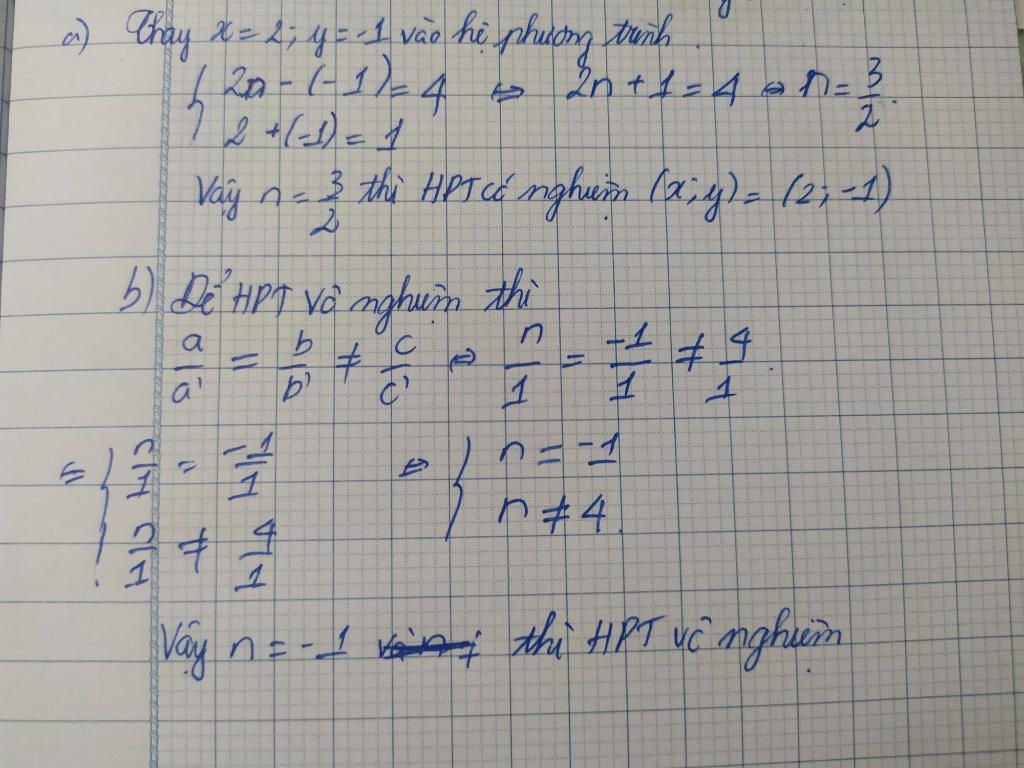 a) Thay x = 2; y = -1 vào hệ phương trình.
{ 2n - (-1) = 4 ⇔ 2n + 1 = 4 ⇔ n = 3/2.
2 + (-1) = 1
Vậy n = 3/2 thì HPT có nghiệm (x; y) = (2; -1)
b) Để HPT vô nghiệm thì
a/a' = b/b' ≠ c/c' ⇔ n/1 = -1/1 ≠ 4/1.
⇔ { n/1 = -1/1 ⇔ { n = -1
n/1 ≠ 4/1 n ≠ 4.
Vậy n = -1 thì HPT vô nghiệm